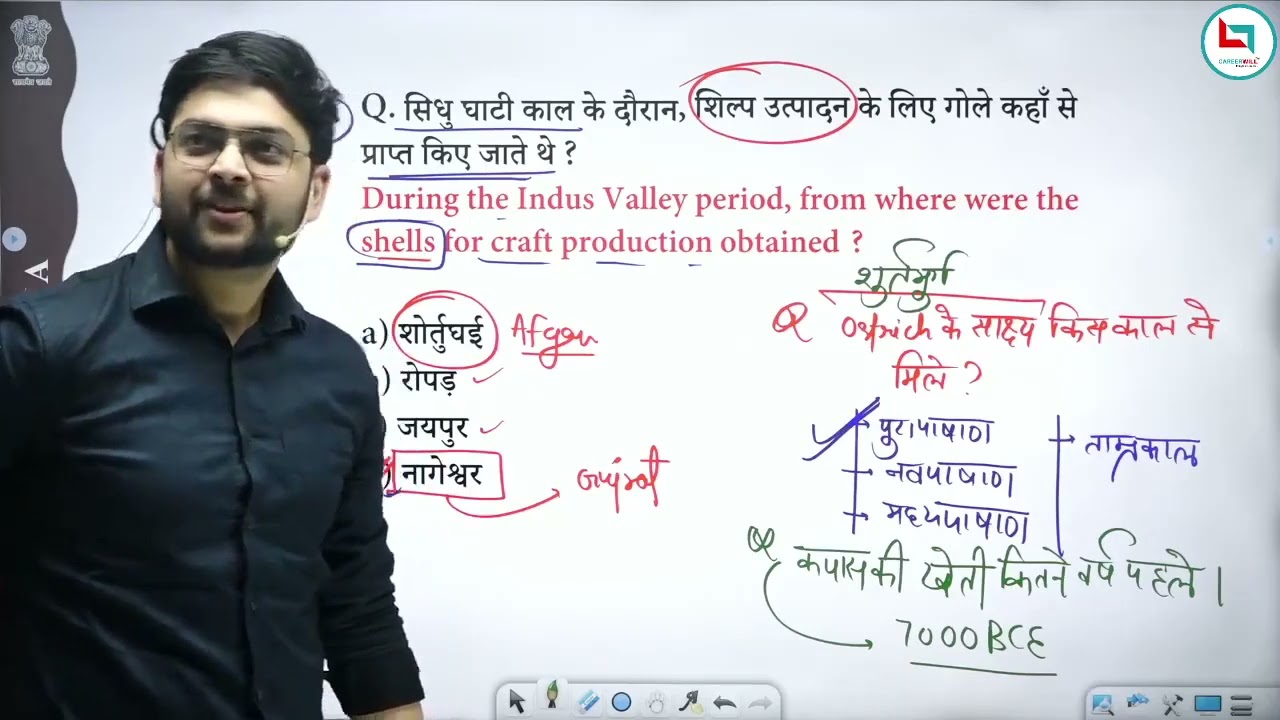 सत्यमेव जयते
CAREERWILL
Q. सिधु घाटी काल के दौरान, शिल्प उत्पादन के लिए गोले कहाँ से
प्राप्त किए जाते थे ?
During the Indus Valley period, from where were the
shells for craft production obtained ?
a) शोर्तुघई Afgan
) रोपड़
जयपुर
) नागेश्वर गुजरात
A
शुर्तमुर्ग
Q Ostrich के साक्ष्य किस काल से
मिले ?
पुरापाषाण
नवपाषाण
मध्यपाषाण
ताम्रकाल
Q कपास की खेती कितने वर्ष पहले |
7000 BCE